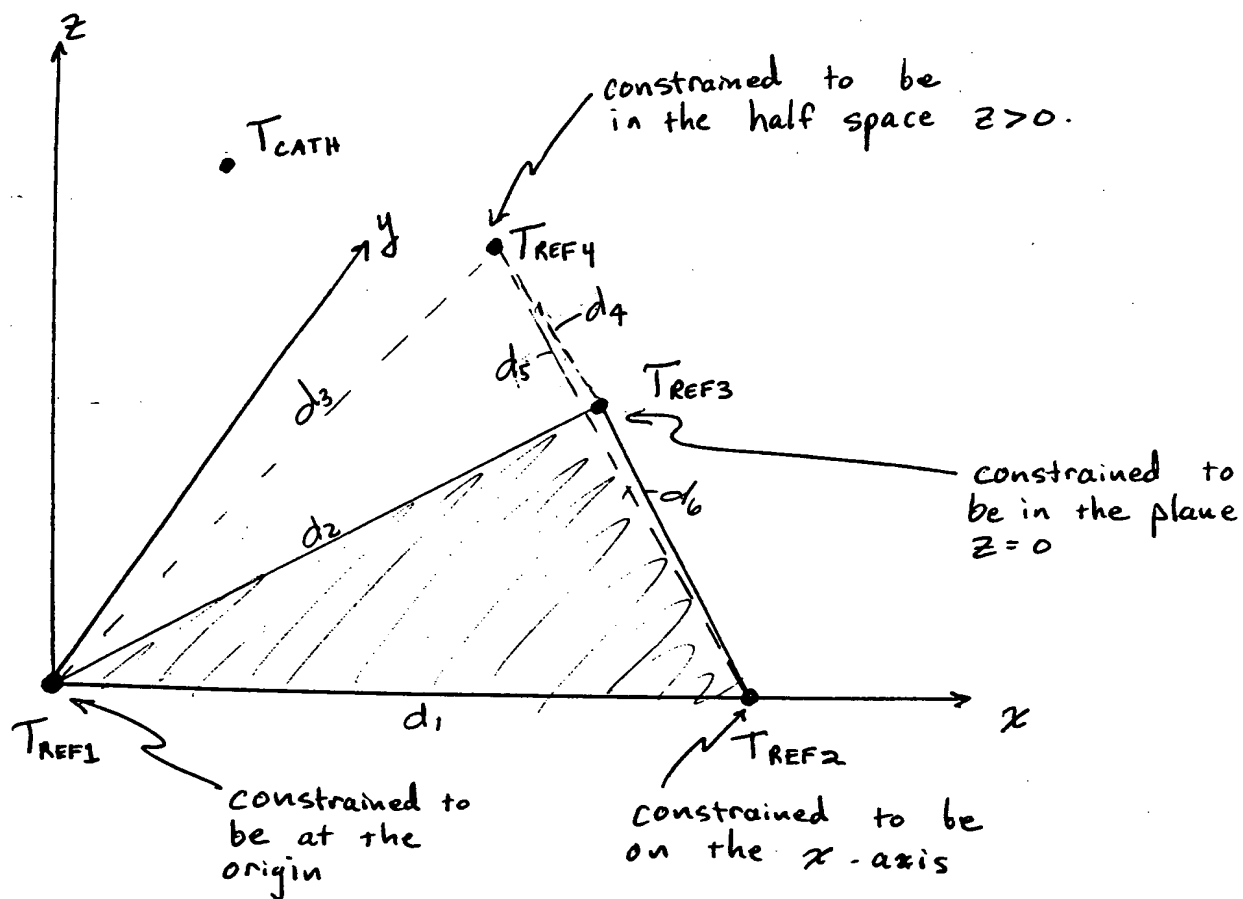 z
constrained to be
in the half space z>0.
T CATH
y
T REF4
d4
d5
T REF3
d3
constrained to
be in the plane
z=0
d6
d2
d1
x
T REF1
T REF2
constrained to
be at the
origin
constrained to be
on the x-axis